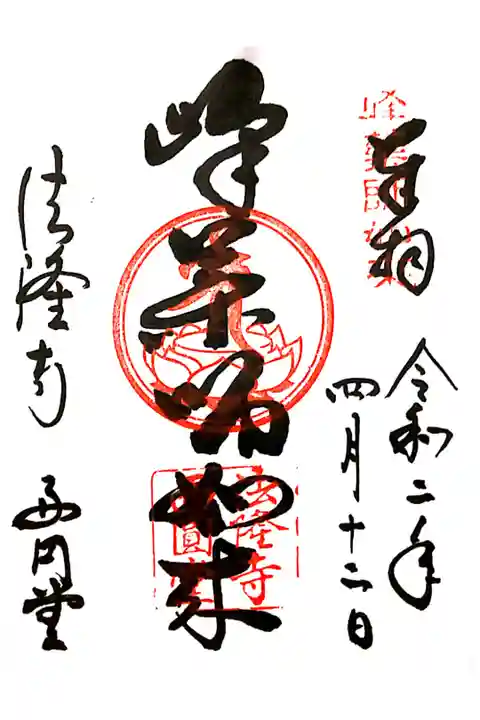 奉拝
峰薬師如来
令和二年
四月十二日
峰薬師如来
法隆寺
法隆寺
西円堂